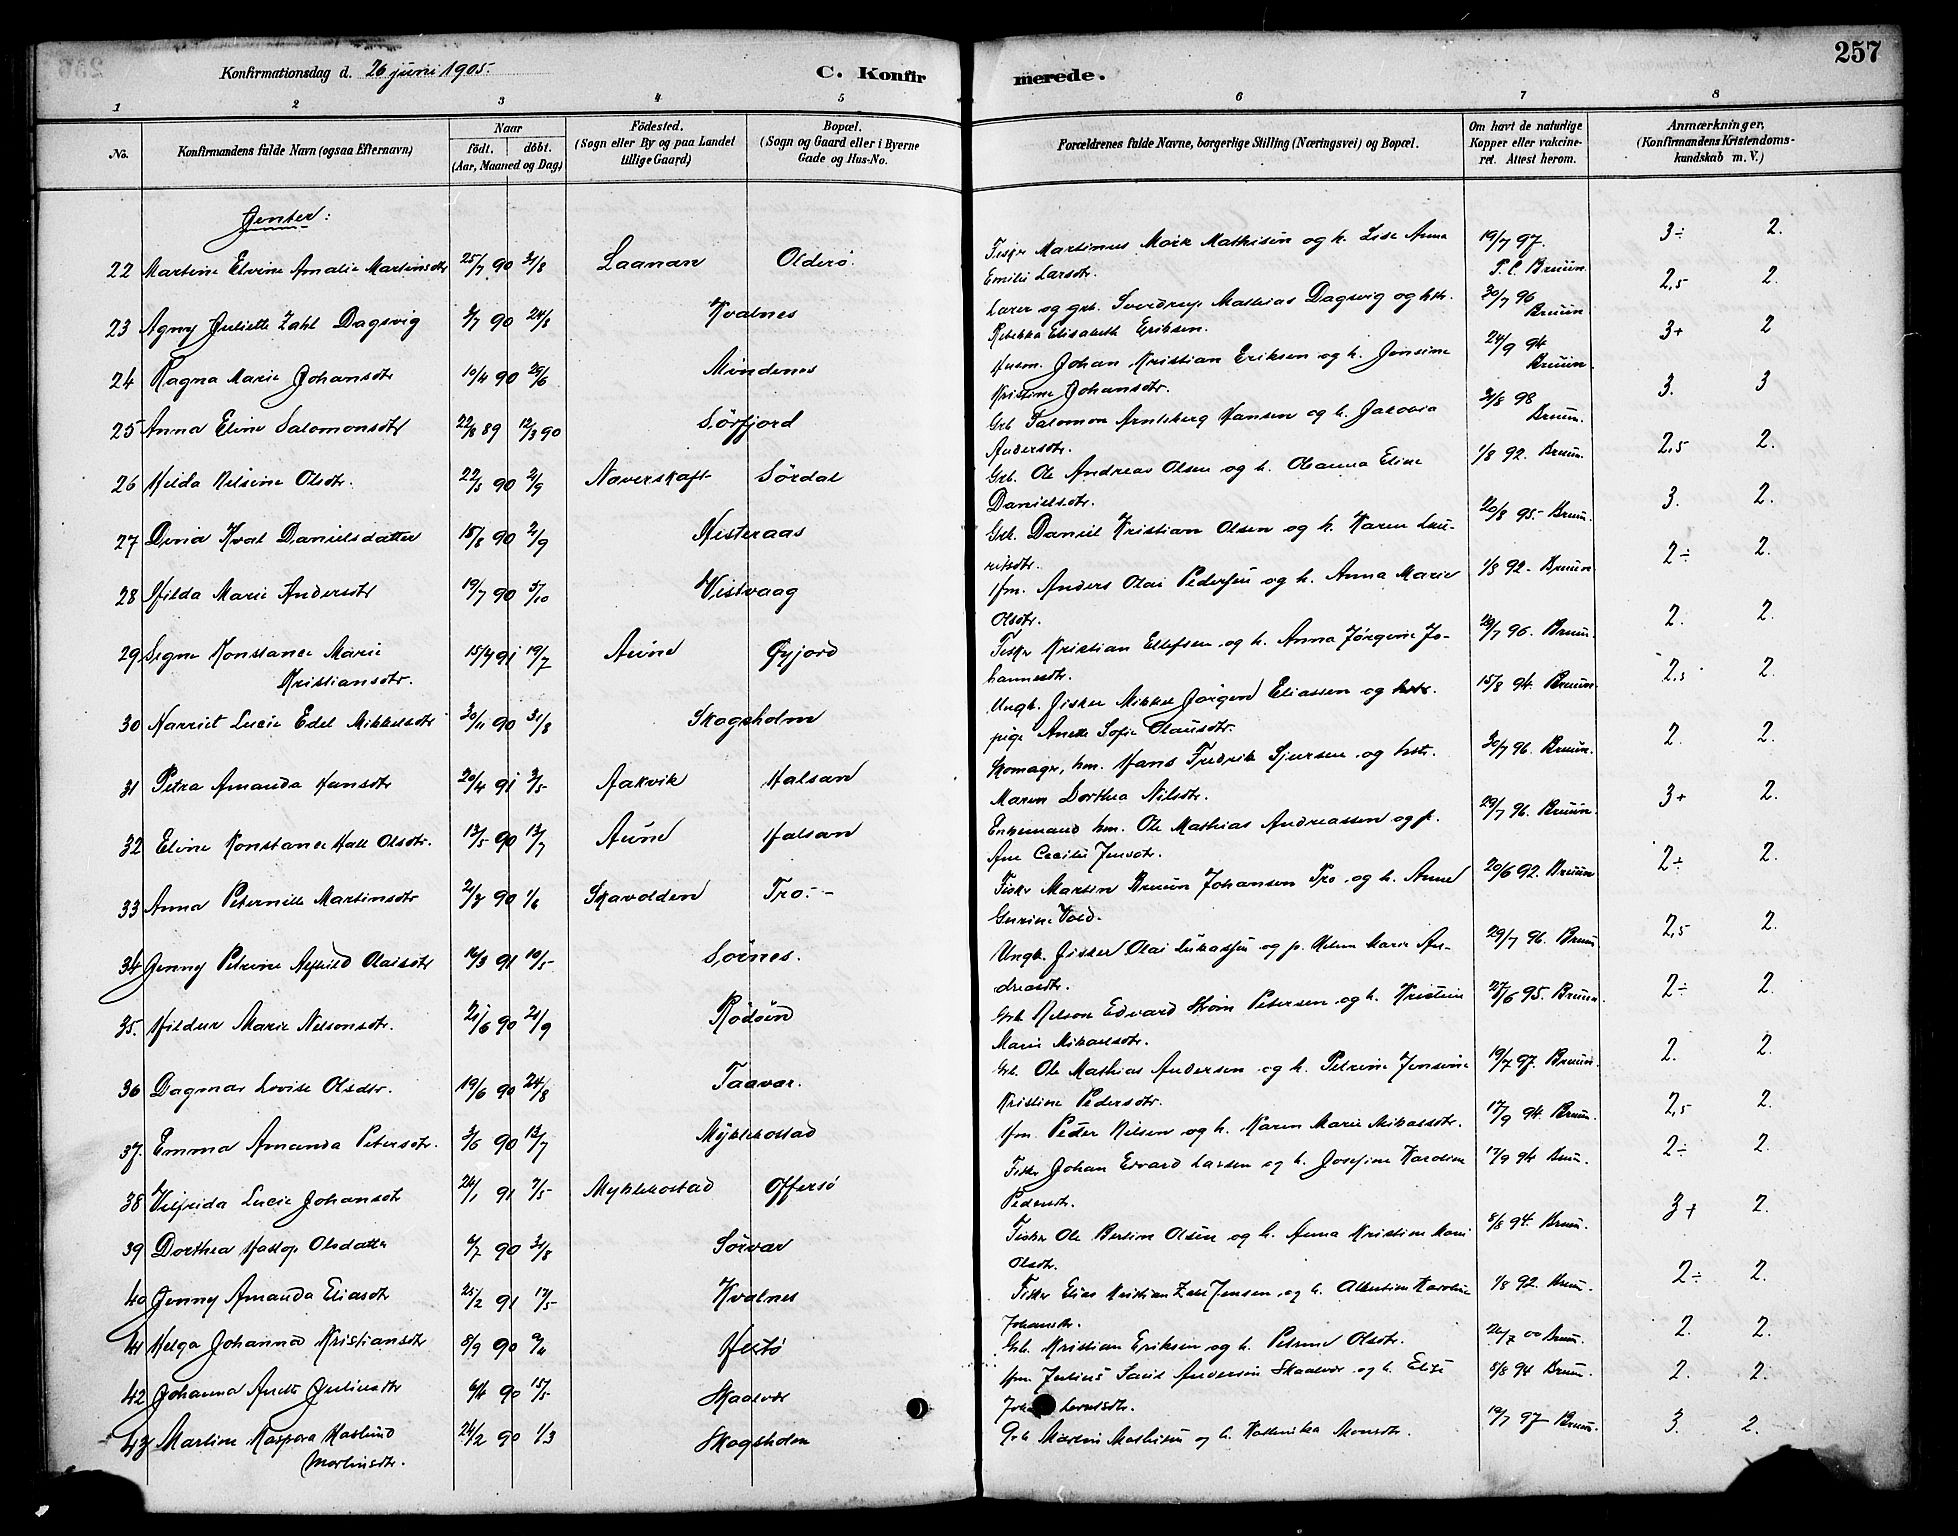 257
Konfirmationsdag d. 26 juni 1905.
C. Konfirmerede.
1 2 3 4 5 6 7 8
No.
Konfirmandens fulde Navn (ogsaa Efternavn)
Naar
födt. döbt.
(Aar, Maaned og Dag)
Födested.
(Sogn eller By og paa Landet tillige Gaard)
Bopæl.
(Sogn og Gaard eller i Byerne Gade og Hus-No.
Forældrenes fulde Navne, borgerlige Stilling (Næringsvei) og Bopæl.
Om havt de naturlige Kopper eller vakcineret. Attest herom.
Anmærkninger,
(Konfirmandens Kristendomskundskab m. V.)
Jenter:
22 Martine Elvine Amalie Martinsdtr 25/7 90 31/8 Laanan Olderö. Fisker Martinus Mörk Mathisen og h. Lise Anna Emilie Larsdtr. 19/7 97. P.C. Bruun 3÷ 2.
23 Agny Juliette Zahl Dagsvig 90 24/8 Kvalnes Lærer og grb. Sverdrup Mathias Dagsvig og hstr. Rebekka Elisabeth Eriksen. 30/7 96 Bruun 2,5 2.
24 Ragna Marie Johansdtr 10/4 90 29/6 Mindenes Husm. Johan Kristian Eriksen og h. Jensine Kristine Johansdtr. 24/9 94 Bruun 3+ 2
25 Anna Eline Salomonsdtr 22/8 89 12/3 90 Sörfjord Grb Salomon Arntsberg Hansen og h. Jakobia Andersdtr. 31/8 98 Bruun. 3. 3
26 Hilda Nilsine Olsdtr. 22/5 90 2/9 Næverskaft Sördal Grb. Ole Andreas Olsen og h. Oleanna Eline Danielsdtr. 1/8 92. Bruun. 2,5 2.
27 Dina Hval Danielsdatter 18/8 90 2/9 Histeraas Grb. Daniel Kristian Olsen og h. Karen Lauritsdtr. 20/8 95.- Bruun. 3. 2.
28 Hilda Marie Andersdtr 19/7 90 5/10 Vistvaag Hm. Anders Olai Pedersen og h. Anna Marie Olsdtr. 1/8 92- Bruun 2÷ 2.
29 Signe Konstance Marie Kristiansdtr. 15/4 91 19/7 Aune Öyjord Fisker Kristian Ellefsen og h. Anna Jörgine Johannesdtr. 29/7 96. Bruun. 2. 2.
30 Harriet Lucie Edel Mikkelsdtr 30/11 90 31/8 Skogsholm Ungk. Fisker Mikkel Jörgen Eliassen og pige Anette Sofie Olausdtr. 15/8 94. Bruun. 2,5 2.
31 Petra Amanda Hansdtr 20/4 91 3/5 Aakvik Halsan Skomager, hm. Hans Fredrik Sjursen og hstr. Maren Dorthea Nilsdtr. 30/7 96. Bruun. 2. 2.
32 Elvine Konstance Hall Olsdtr. 13/5 90 13/7 Aune Halsan Enkemand hm. Ole Mathias Andreassen og p. Ane Cecilie Jensdtr. 29/7 96. Bruun. 3+ 2.
33 Anna Peternille Martinsdtr 90 1/6 Skavolden Tro.- Fisker Martin Bruun Johansen Tro og h. Anne Gurine Vold. 20/6 92. Bruun 2÷ 2.
34 Jenny Petrine Olaisdtr 16/3 91 10/5 Sörnes. Ungk. Fisker Olai Lukassen og p. Helene Marie Andreasdtr. 29/7 96. Bruun 2,5 2.
35. Hildur Marie Nilsonsdtr. 21/6 90 21/9 Rödöen Grb. Nilson Edvard Ström Petersen og h. Kristine Marie Mikaelsdtr. 27/6 95. Bruun. 2÷ 2.
36 Dagmar Lovise Olsdtr. 19/6 90 24/8 Taavær. Grb. Ole Mathias Andersen og h. Petrine Jensine Kristine Pedersdtr. 19/7 97. Bruun. 2. 2.
37. Emma Amanda Petersdtr. 3/6 90 13/7 Myklebostad Hm. Peder Nilsen og h. Karen Marie Mikalsdtr. 17/9 94. Bruun. 2,5 2.
38 Vilfrida Lucie Johansdtr 24/1 91 7/5 Myklebostad Offersö Fisker Johan Edvard Larsen og h. Josefine Karoline Pedersdtr. 17/9 94 Bruun. 2÷ 2.
39 Dorthea Hastop Olsdatter 6/7 90 31/8 Sörvær Fisker Ole Bertin Olsen og h. Anna Kristine Marie Olsdtr. 8/8 94. Bruun. 3+ 2.
40 Jenny Amanda Eliasdtr 25/2 91 17/5 Kvalnes Fisker Elias Kristian Jensen og h. Albertine Karoline Johansdtr. 1/8 92. Bruun. 2÷ 2.
41 Helga Johanna Kristiansdtr 8/9 90 9/11 Hestö Grb. Kristian Eriksen og h. Petrine Olsdtr. 26/7 00 Bruun. 2. 2.
42 Johanna Anette Juliusdtr 6/4 90 15/5 Skaalvær Hm. Julius Andersen Skaalvær og h. Elise 8/8 94 Bruun. 2. 2.
43 Martine Kaspara Haslund Martinsdtr. 24/2 90 1/3 Skogsholm Grb Martin Mathisen og h. Monsdtr. 19/7 97- Bruun. 3. 2.